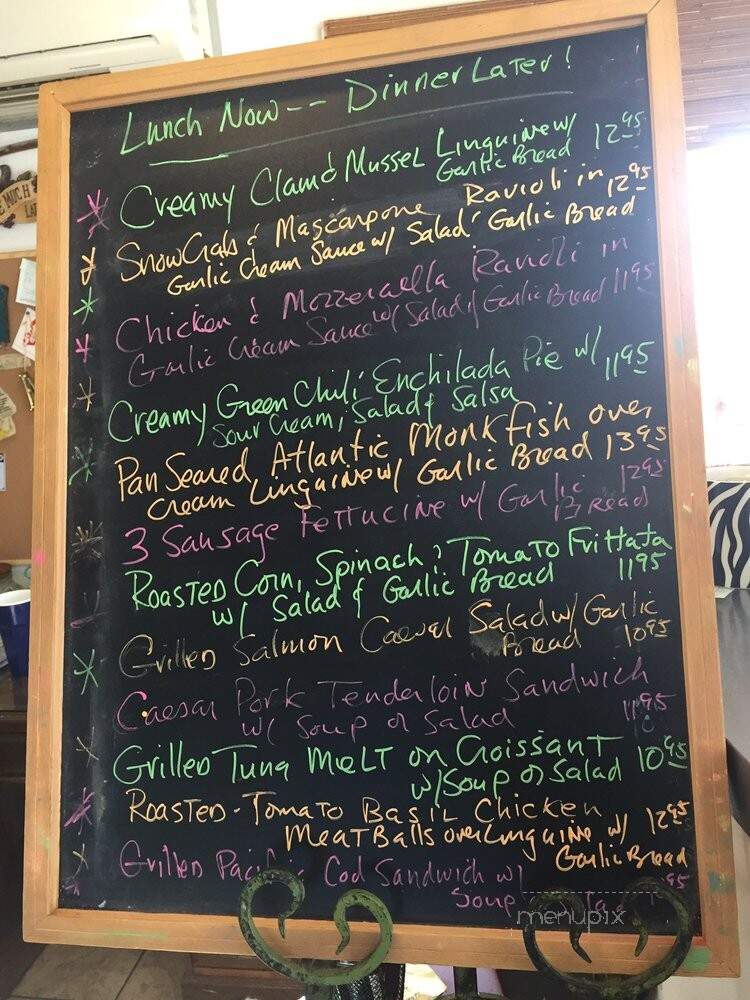 Lunch Now -- Dinner Later!
Creamy Clam & Mussel Linguine w/ 12.95
Garlic Bread
Snow Crab & Mascarpone Ravioli in 12.95
Garlic Cream Sauce w/ Salad & Garlic Bread
Chicken & Mozzeraella Ravioli in
Garlic Cream Sauce w/ Salad & Garlic Bread 11.95
Creamy Green Chili Enchilada Pie w/ 11.95
Sour Cream, Salad & Salsa
Pan Seared Atlantic Monkfish over
Cream Linguine w/ Garlic Bread 13.95
3 Sausage Fettucine w/ Garlic 12.95
Bread
Roasted Corn, Spinach & Tomato Frittata
w/ Salad & Garlic Bread 11.95
Grilled Salmon Caesar Salad w/ Garlic
Bread 10.95
Caesar Pork Tenderloin Sandwich
w/ Soup or Salad 11.95
Grilled Tuna Melt on Croissant 10.95
w/ Soup or Salad
Roasted-Tomato Basil Chicken
Meatballs over Linguine w/ 12.95
Garlic Bread
Grilled Pacific Cod Sandwich w/
Soup 95
menupix